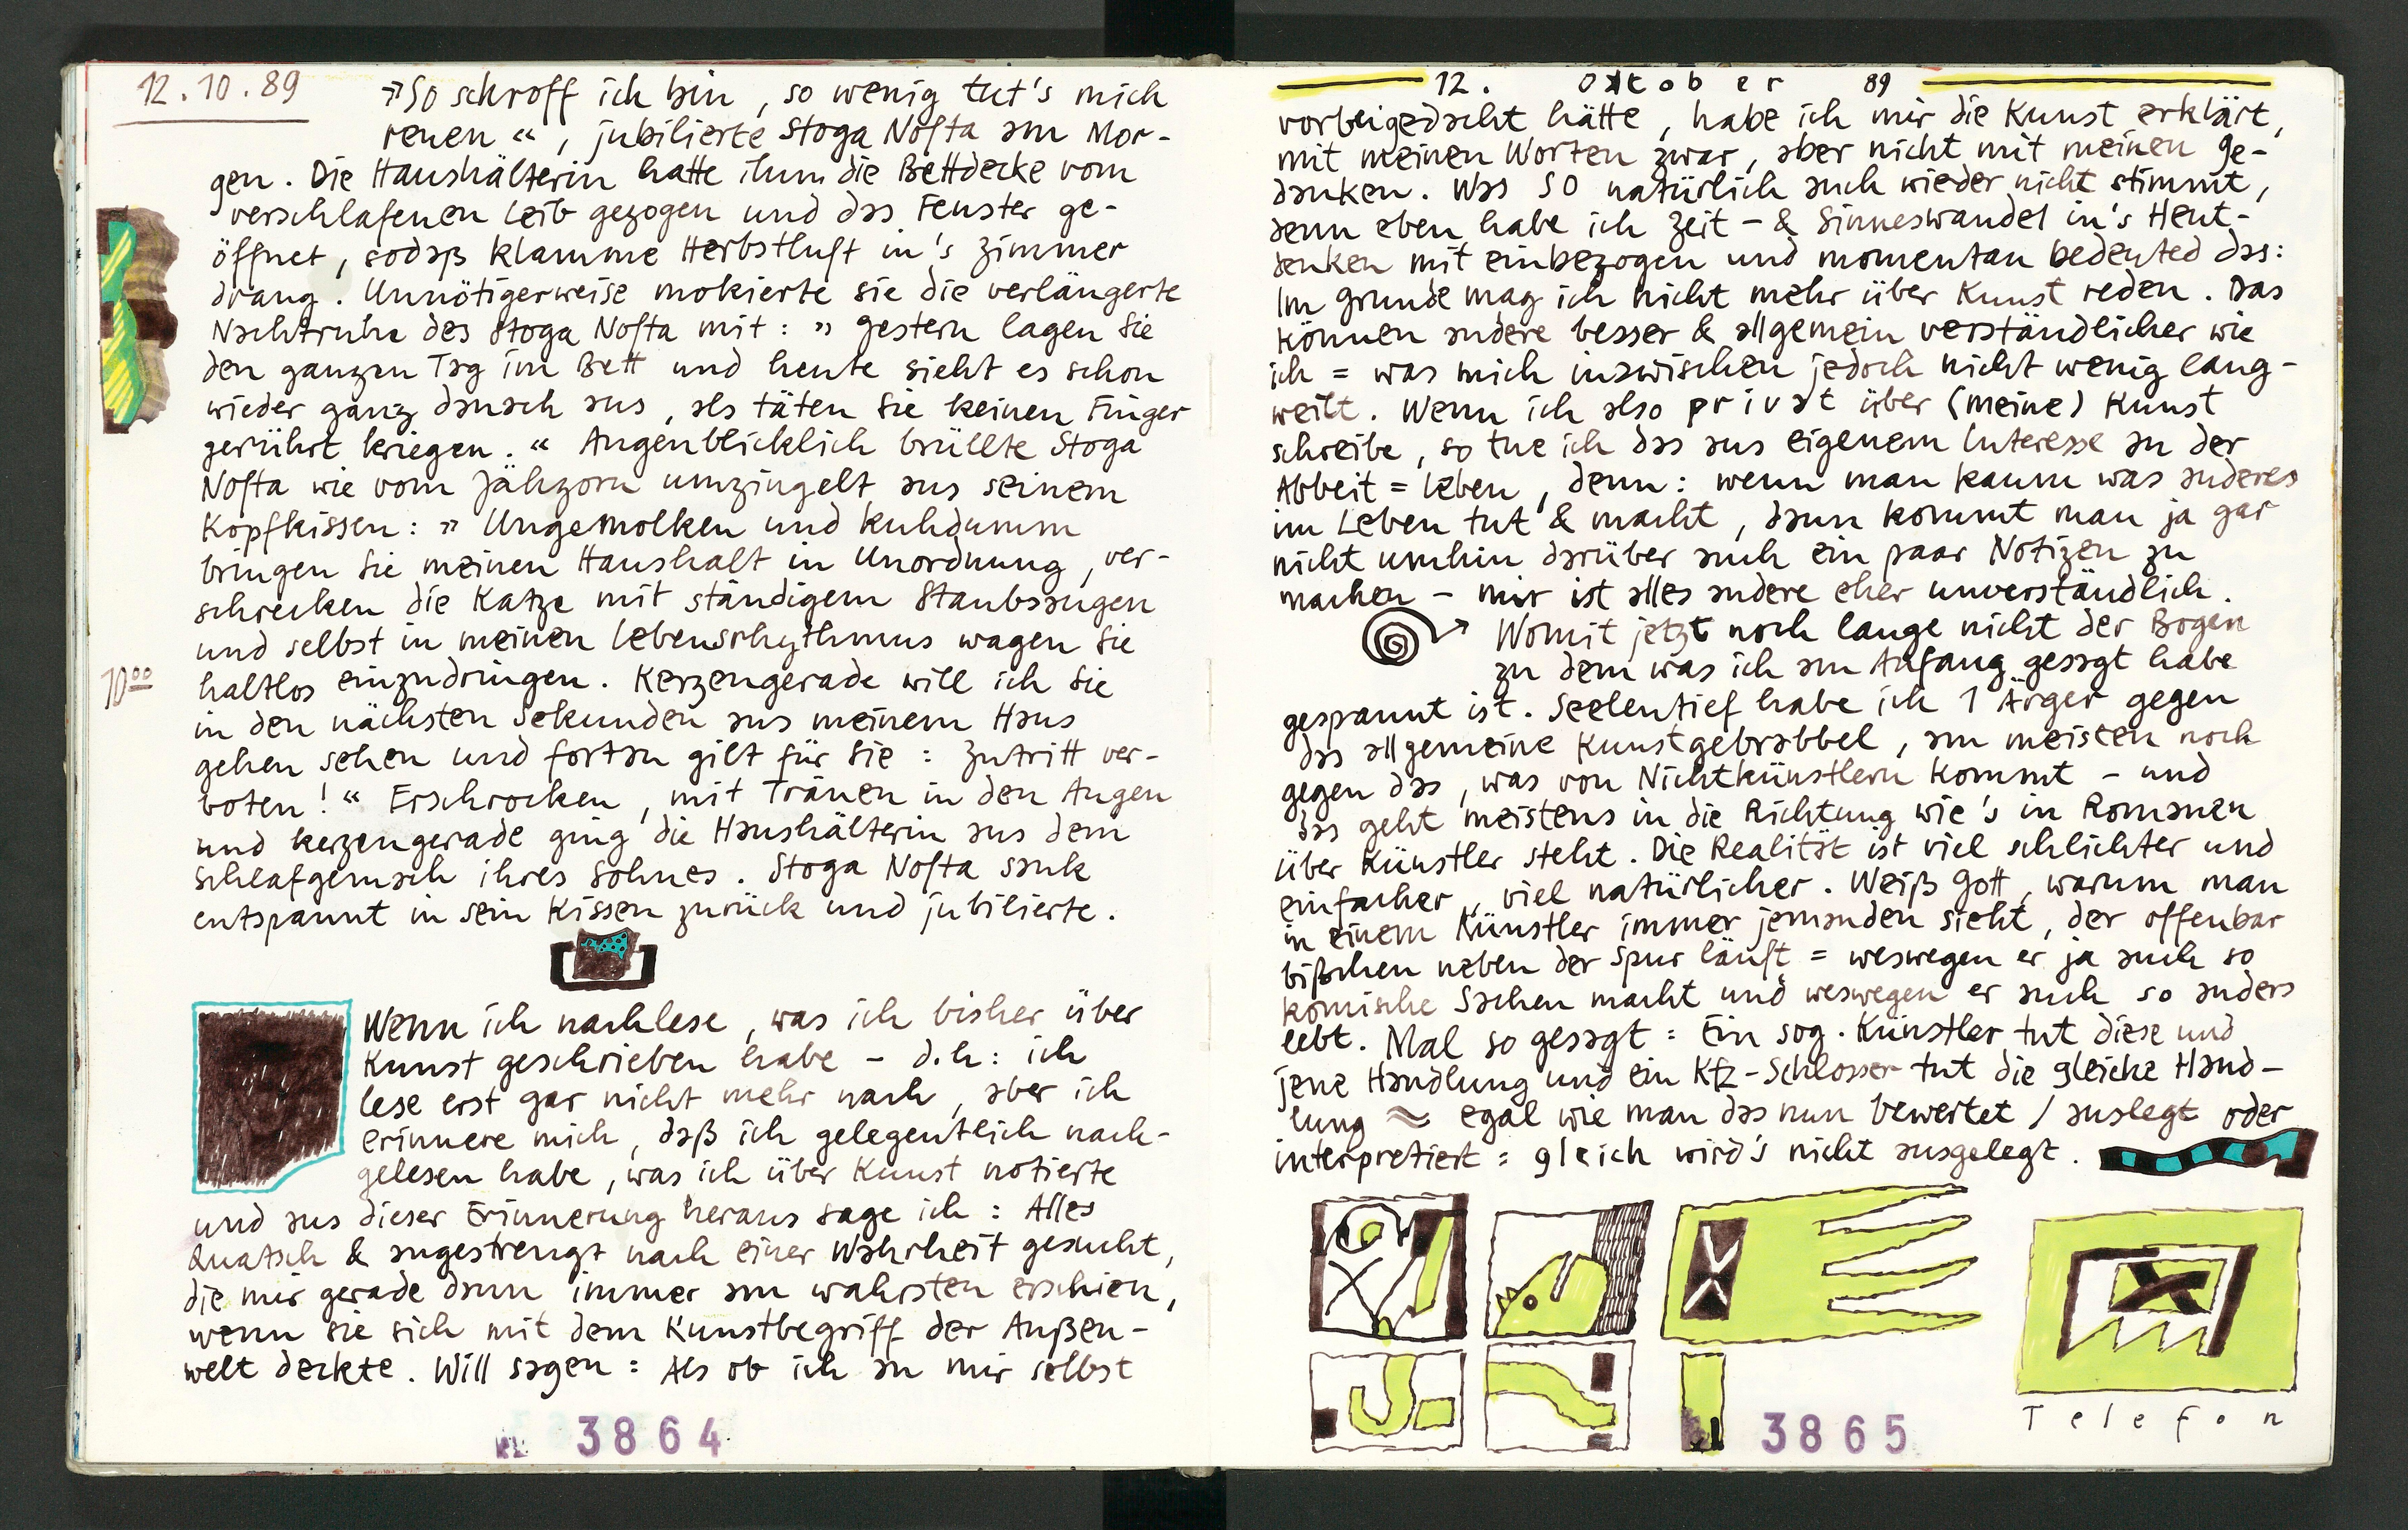 12.10.89
»So schroff ich bin, so wenig tut's mich
reuen«, jubilierte Stoga Nofta am Mor-
gen. Die Haushälterin hatte ihm die Bettdecke vom
verschlafenen Leib gezogen und das Fenster ge-
öffnet, sodaß klamme Herbstluft in's Zimmer
drang. Unnötigerweise mokierte sie die verlängerte
Nachtruhe des Stoga Nofta mit: » Gestern lagen Sie
den ganzen Tag im Bett und heute sieht es schon
wieder ganz danach aus, als täten Sie keinen Finger
gerührt kriegen. « Augenblicklich brüllte Stoga
Nofta wie vom Jähzorn umzingelt aus seinem
Kopfkissen: » Ungemolken und kuhdumm
bringen Sie meinen Haushalt in Unordnung, ver-
schrecken die Katze mit ständigem Staubsaugen
und selbst in meinen Lebensrhythmus wagen Sie
10⁰⁰ haltlos einzudringen. Kerzengerade will ich Sie
in den nächsten Sekunden aus meinem Haus
gehen sehen und fortan gilt für Sie: Zutritt ver-
boten! « Erschrocken, mit Tränen in den Augen
und kerzengerade ging die Haushälterin aus dem
Schlafgemach ihres Sohnes. Stoga Nofta sank
entspannt in sein Kissen zurück und jubilierte.
Wenn ich nachlese, was ich bisher über
Kunst geschrieben habe – d.h: ich
lese erst gar nicht mehr nach, aber ich
erinnere mich, daß ich gelegentlich nach-
gelesen habe, was ich über Kunst notierte
und aus dieser Erinnerung heraus sage ich: Alles
Quatsch & angestrengt nach einer Wahrheit gesucht,
die mir gerade dann immer am wahrsten erschien,
wenn sie sich mit dem Kunstbegriff der Außen-
welt deckte. Will sagen: Als ob ich an mir selbst
3864
12. Oktober 89
vorbeigedacht hätte, habe ich mir die Kunst erklärt,
mit meinen Worten zwar, aber nicht mit meinen Ge-
danken. Was SO natürlich auch wieder nicht stimmt,
denn eben habe ich Zeit- & Sinneswandel in's Heut-
denken mit einbezogen und momentan bedeuted das:
Im Grunde mag ich nicht mehr über Kunst reden. Das
können andere besser & allgemein verständlicher wie
ich = was mich inzwischen jedoch nicht wenig lang-
weilt. Wenn ich also privat über (meine) Kunst
schreibe, so tue ich das aus eigenem Interesse an der
Abbeit = Leben, denn: wenn man kaum was anderes
im Leben tut & macht, dann kommt man ja gar
nicht umhin darüber auch ein paar Notizen zu
machen – mir ist alles andere eher unverständlich.
Womit jetzt noch lange nicht der Bogen
zu dem was ich am Anfang gesagt habe
gespannt ist. Seelentief habe ich 1 Ärger gegen
das allgemeine Kunstgebrabbel, am meisten noch
gegen das, was von Nichtkünstlern kommt – und
das geht meistens in die Richtung wie's in Romanen
über Künstler steht. Die Realität ist viel schlichter und
einfacher, viel natürlicher. Weiß Gott, warum man
in einem Künstler immer jemanden sieht, der offenbar
bißchen neben der Spur läuft = weswegen er ja auch so
komische Sachen macht und weswegen er auch so anders
lebt. Mal so gesagt: Ein sog. Künstler tut diese und
jene Handlung und ein Kfz-Schlosser tut die gleiche Hand-
lung ≈ egal wie man das nun bewertet / auslegt oder
interpretiert: gleich wird's nicht ausgelegt.
Telefon
3865